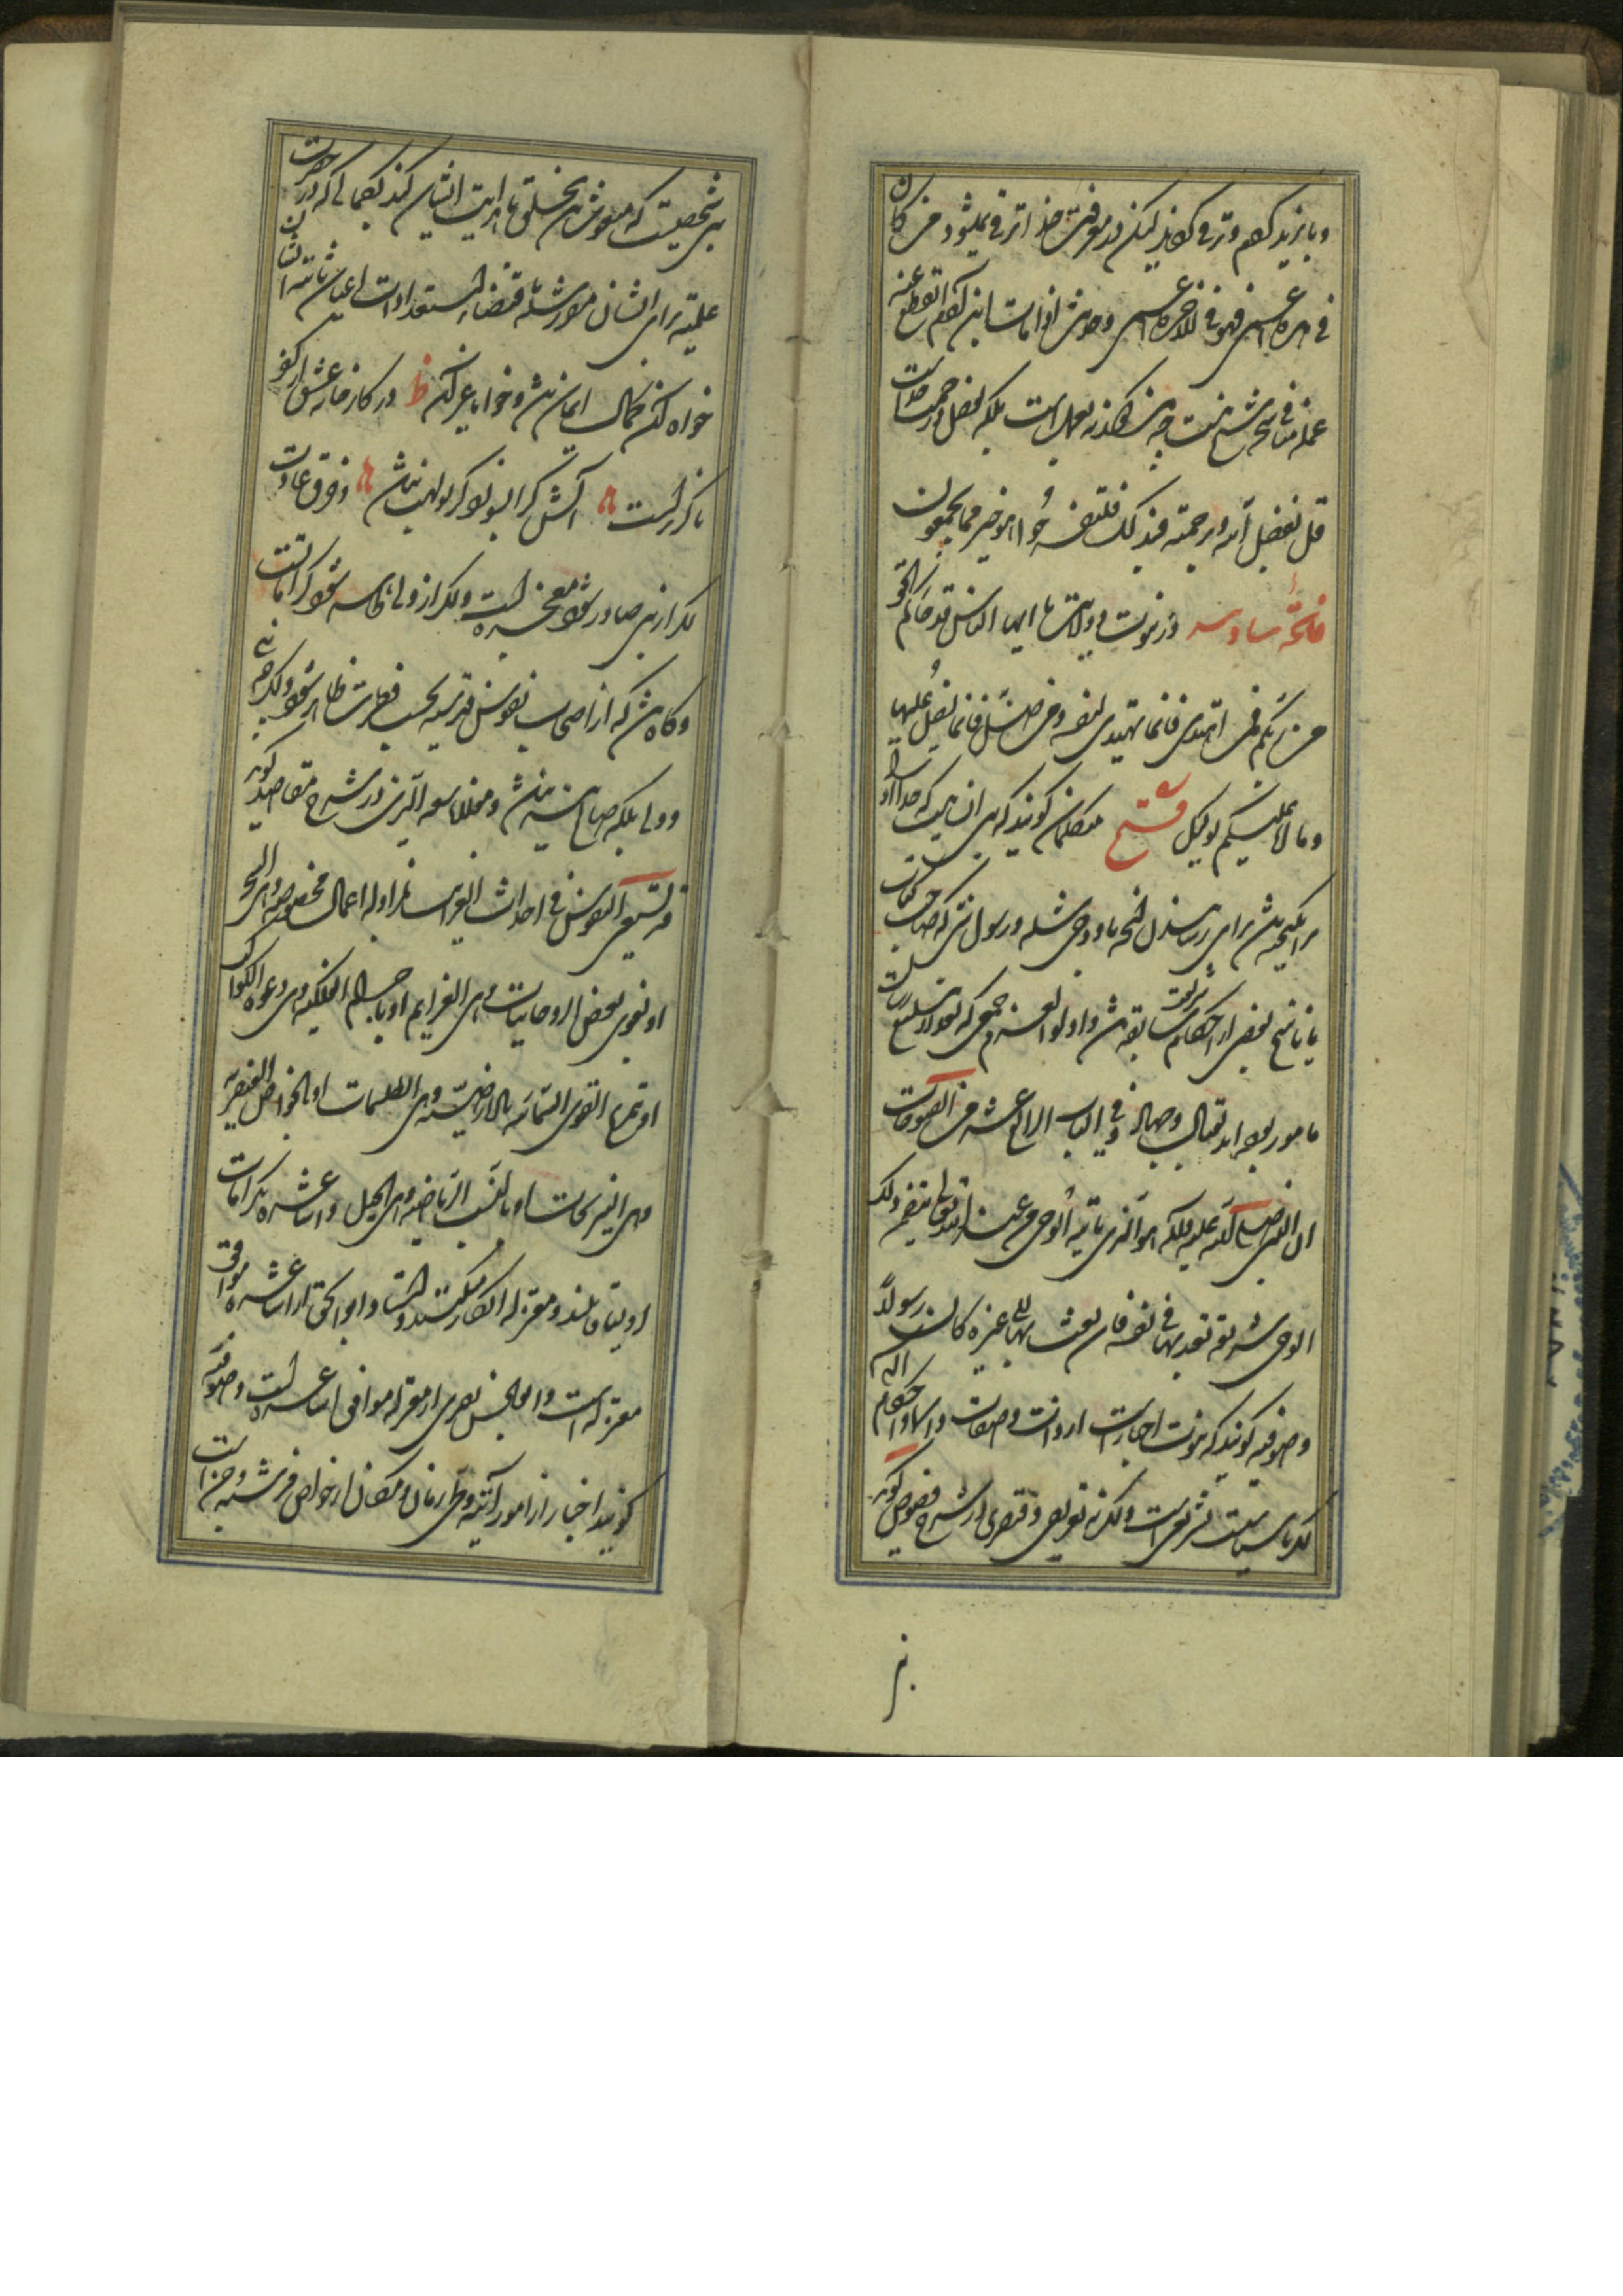 و با یزید کرم و ترقی کرد لیکن در معرفت خدا ترقی میشود من کان
فی هذه اعمی فهو فی الاخرة اعمی و حدیث اذا مات ابن آدم انقطع عنه
عمله منافی این سخن نیست چه این کار نه بعمل است بلکه بفضل و رحمت خداست
قل بفضل الله و برحمته فبذلک فلیفرحوا هو خیر مما یجمعون
فاتحه سادسه در نبوت و ولایت یا ایها الناس قد جاءکم الحق
من ربکم فمن اهتدی فانما یهتدی لنفسه و من ضل فانما یضل علیها
و ما انا علیکم بوکیل فتح متکلمان گویند که نبی انسانیست که خدا او را
برانگیخته باشد برای رسانیدن آنچه باو وحی شده و رسول نبی که صاحب کتاب
یا ناسخ بعضی از احکام شریعت سابقه باشد و اولو العزم جمعی که بعد از تبلیغ رسالت
مامور بوده اند بقتال و جهاد و فی الباب الرابع عشر من الفتوحات
ان النبی صلی الله علیه هو الذی یاتیه الوحی من عند الله تعالی یتضمن ذلک
الوحی شریعة یتعبد بها فی نفسه فان بعث بها الی غیره کان رسولا
و صوفیه گویند که نبوت اخبار است از ذات و صفات و اسما و احکام الهی
اگر با سیاست تشریعی است و اگر نه تعریفی و قیصری در شرح فصوص گوید
نبی شخصیست که مبعوث باشد بخلق تا هدایت ایشان کند بکمالی که در حضرت
علمیه برای ایشان مقرر شده باقتضاء استعدادات اعیان ثابته ایشان
خواه آن کمال ایمان باشد و خواه غیر آن ظ در کارخانه عشق از کفر
ناگزیر است آتش کرا بسوزد گر بولهب نباشد و خرق عادت
اگر از نبی صادر شود معجزه است و اگر از ولی ظاهر شود کرامات است
و گاه باشد که از اصحاب نفوس قدسیه بحسب فطرت ظاهر شود و اگر چه نبی
و ولی بلکه صالح نیز نباشد و مولانا سعد الدین در شرح مقاصد گوید
قد تستعین النفوس فی احداث الغرایب بمزاولة اعمال مخصوصة و هی السحر
او بقوی بعض الروحانیات و هی العزایم او بالاجرام الفلکیة و هی دعوة الکواکب
او بتمزیج القوی السماویة بالارضیة و هی الطلسمات او بالخواص العنصریة
و هی النیرنجات او بالنسب الریاضیة و هی الحیل و اشاعره بکرامات
اولیا قایلند و معتزله انکار میکنند و استاد ابو اسحق از اشاعره موافق
معتزله است و ابو الحسین بصری از معتزله موافق اشاعره است و صوفیه
گویند اخبار از امور آتیه و طی زمان و مکان از خواص فرشته و جن است
نبی